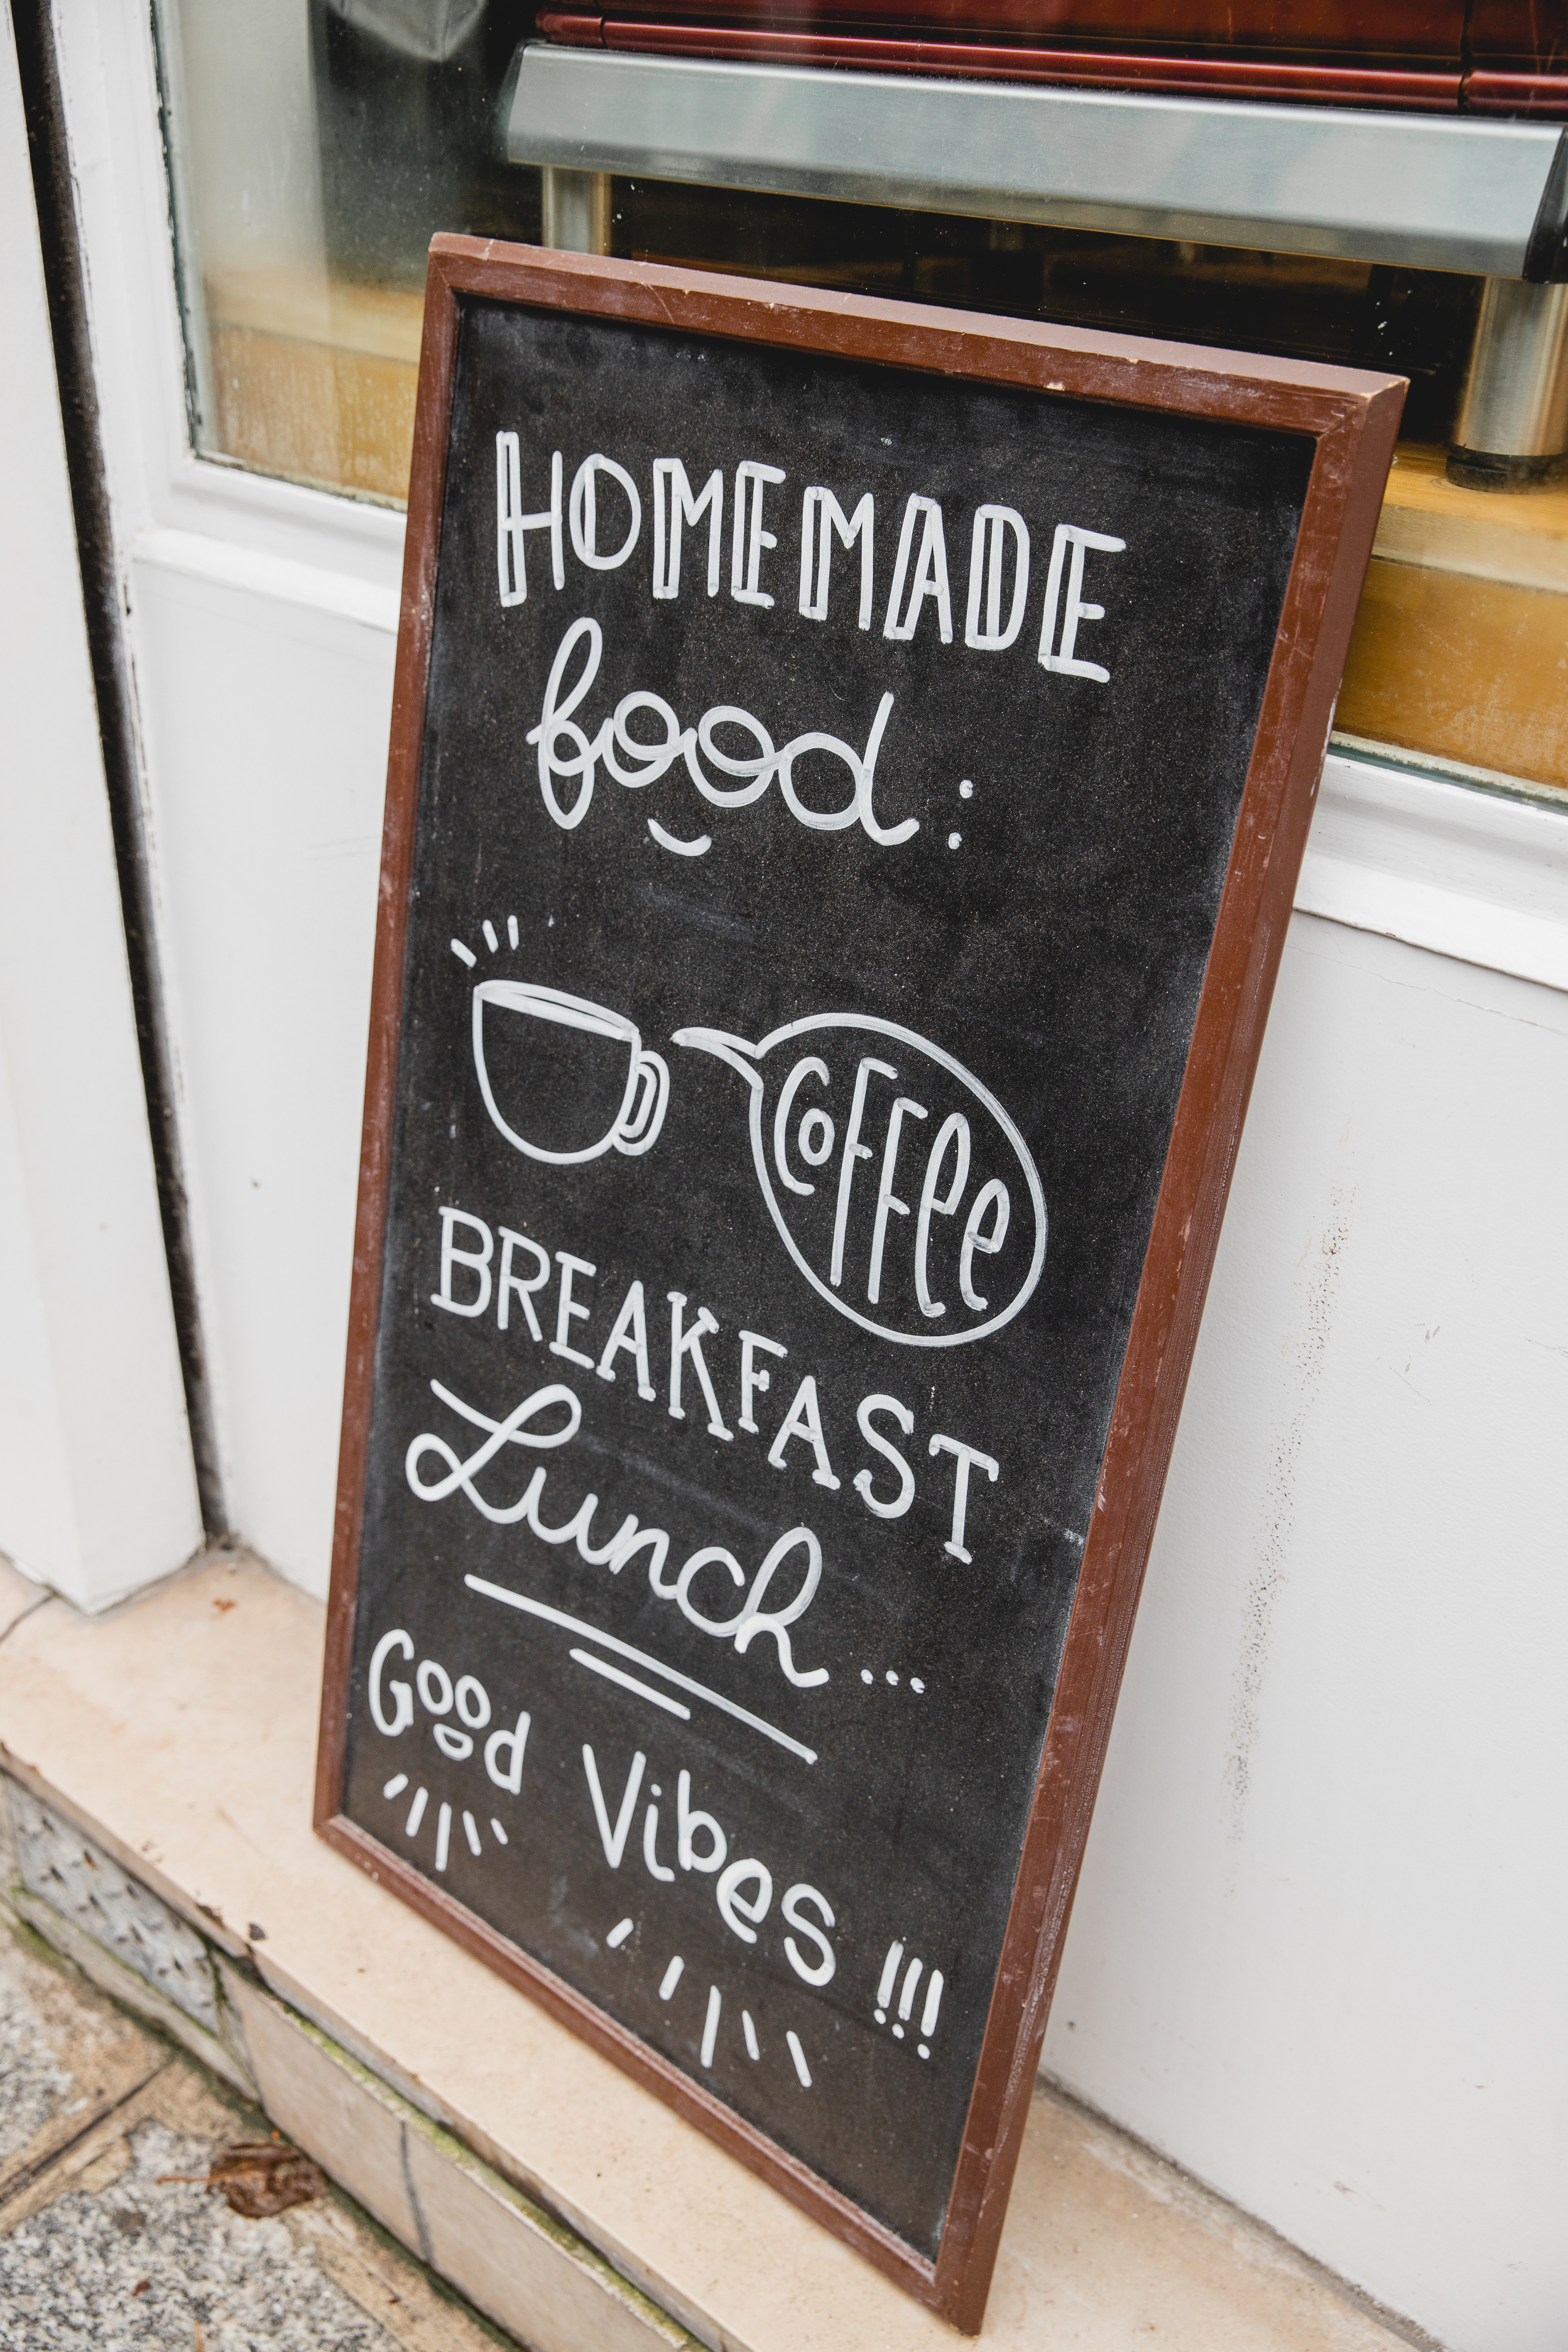 HOMEMADE
food :
COFFee
BREAKFAST
Lunch...
Good Vibes !!!